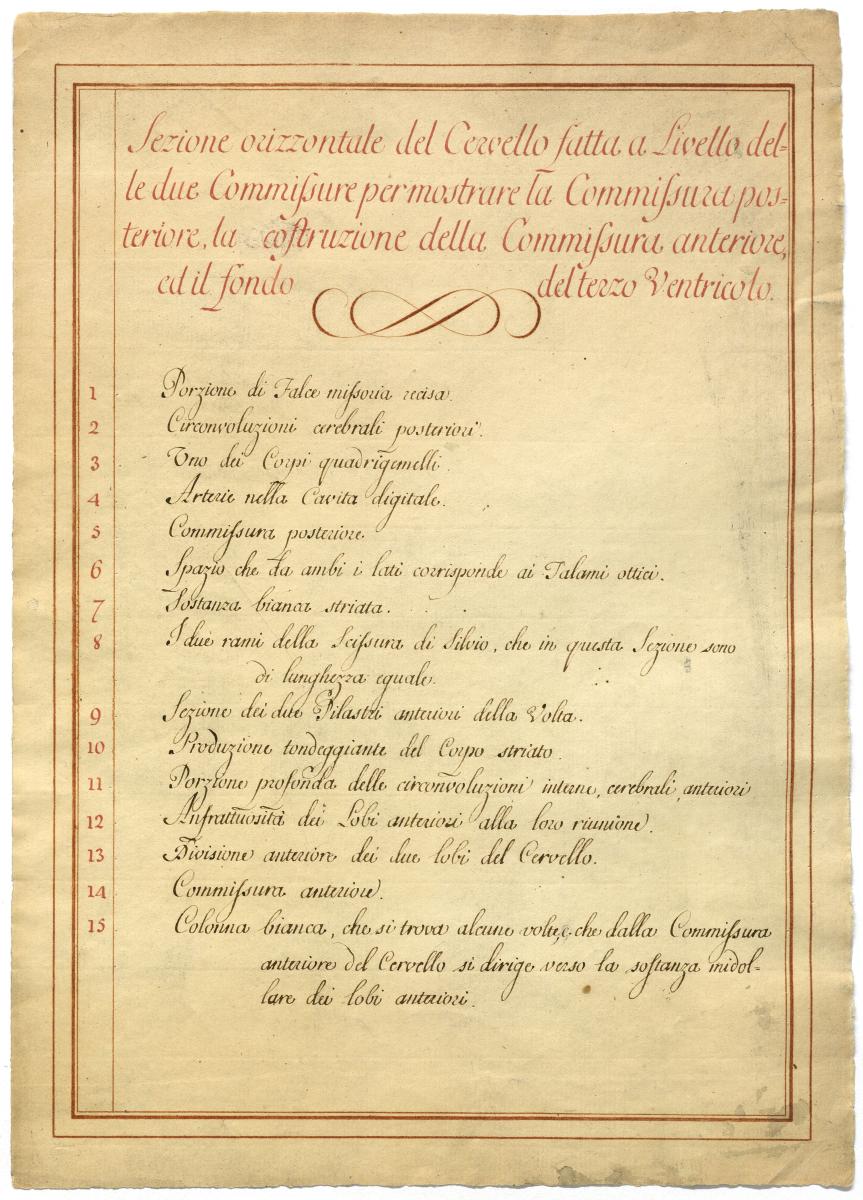 Sezione orizzontale del Cervello fatta a Livello del=
le due Commiſsure per mostrare la Commiſsura pos=
teriore, la coſtruzione della Commiſsura anteriore,
ed il fondo del terzo Ventricolo.
1 Porzione di Falce miſsoria recisa.
2 Circonvoluzioni cerebrali posteriori.
3 Uno dei Corpi quadrigemelli.
4 Arterie nella Cavita digitale.
5 Commiſsura posteriore
6 Spazio che da ambi i lati corrisponde ai Talami ottici.
7 Sostanza bianca striata.
8 I due rami della Sciſsura di Silvio, che in questa Sezione sono
di lunghezza equale.
9 Sezione dei due Pilastri anteriori della Volta.
10 Produzione tondeggiante del Corpo striato.
11 Porzione profonda delle circonvoluzioni interne, cerebrali, anteriori
12 Anfrattuosità dei Lobi anteriori alla loro riunione.
13 Divisione anteriore dei due lobi del Cervello.
14 Commiſsura anteriore.
15 Colonna bianca, che si trova alcune volte, e che dalla Commiſsura
anteriore del Cervello si dirige verso la soſtanza midol-
lare dei lobi anteriori.